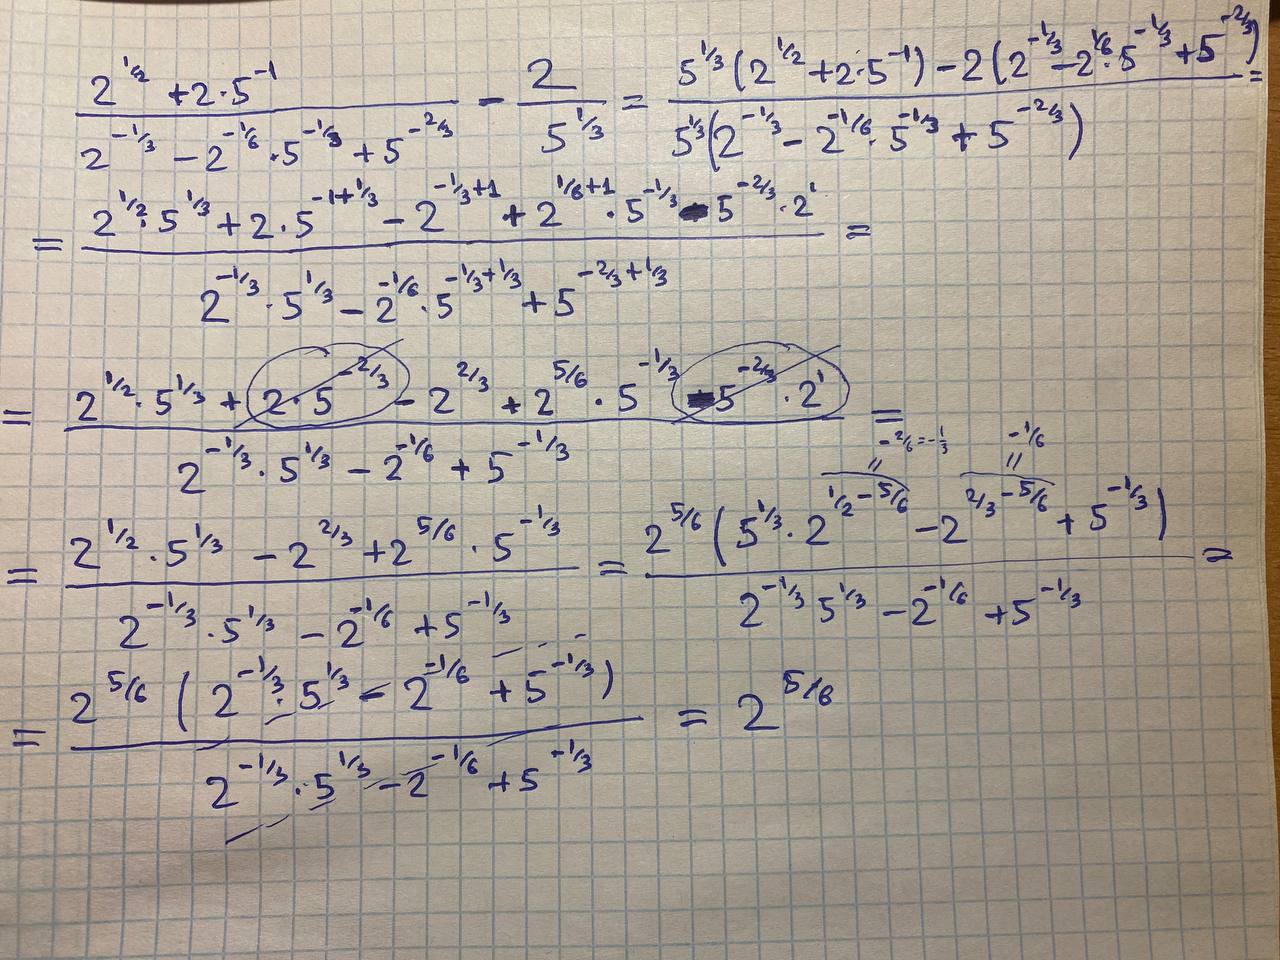 (2^(1/2) + 2·5^(-1)) / (2^(-1/3) - 2^(-1/6)·5^(-1/3) + 5^(-2/3)) - 2 / 5^(1/3) = (5^(1/3)(2^(1/2) + 2·5^(-1)) - 2(2^(-1/3) - 2^(1/6)·5^(-1/3) + 5^(-2/3))) / (5^(1/3)(2^(-1/3) - 2^(-1/6)·5^(-1/3) + 5^(-2/3))) =
= (2^(1/2)·5^(1/3) + 2·5^(-1+1/3) - 2^(-1/3+1) + 2^(1/6+1)·5^(-1/3) - 5^(-2/3)·2^1) / (2^(-1/3)·5^(1/3) - 2^(-1/6)·5^(-1/3+1/3) + 5^(-2/3+1/3)) =
= (2^(1/2)·5^(1/3) + 2·5^(-2/3) - 2^(2/3) + 2^(5/6)·5^(-1/3) - 5^(-2/3)·2^1) / (2^(-1/3)·5^(1/3) - 2^(-1/6) + 5^(-1/3)) =
-2/6 = -1/3 -1/6
= (2^(1/2)·5^(1/3) - 2^(2/3) + 2^(5/6)·5^(-1/3)) / (2^(-1/3)·5^(1/3) - 2^(-1/6) + 5^(-1/3)) = 2^(5/6)(5^(1/3)·2^(1/2-5/6) - 2^(2/3-5/6) + 5^(-1/3)) / (2^(-1/3) 5^(1/3) - 2^(-1/6) + 5^(-1/3)) =
= 2^(5/6)(2^(-1/3)·5^(1/3) - 2^(-1/6) + 5^(-1/3)) / (2^(-1/3)·5^(1/3) - 2^(-1/6) + 5^(-1/3)) = 2^(5/6)